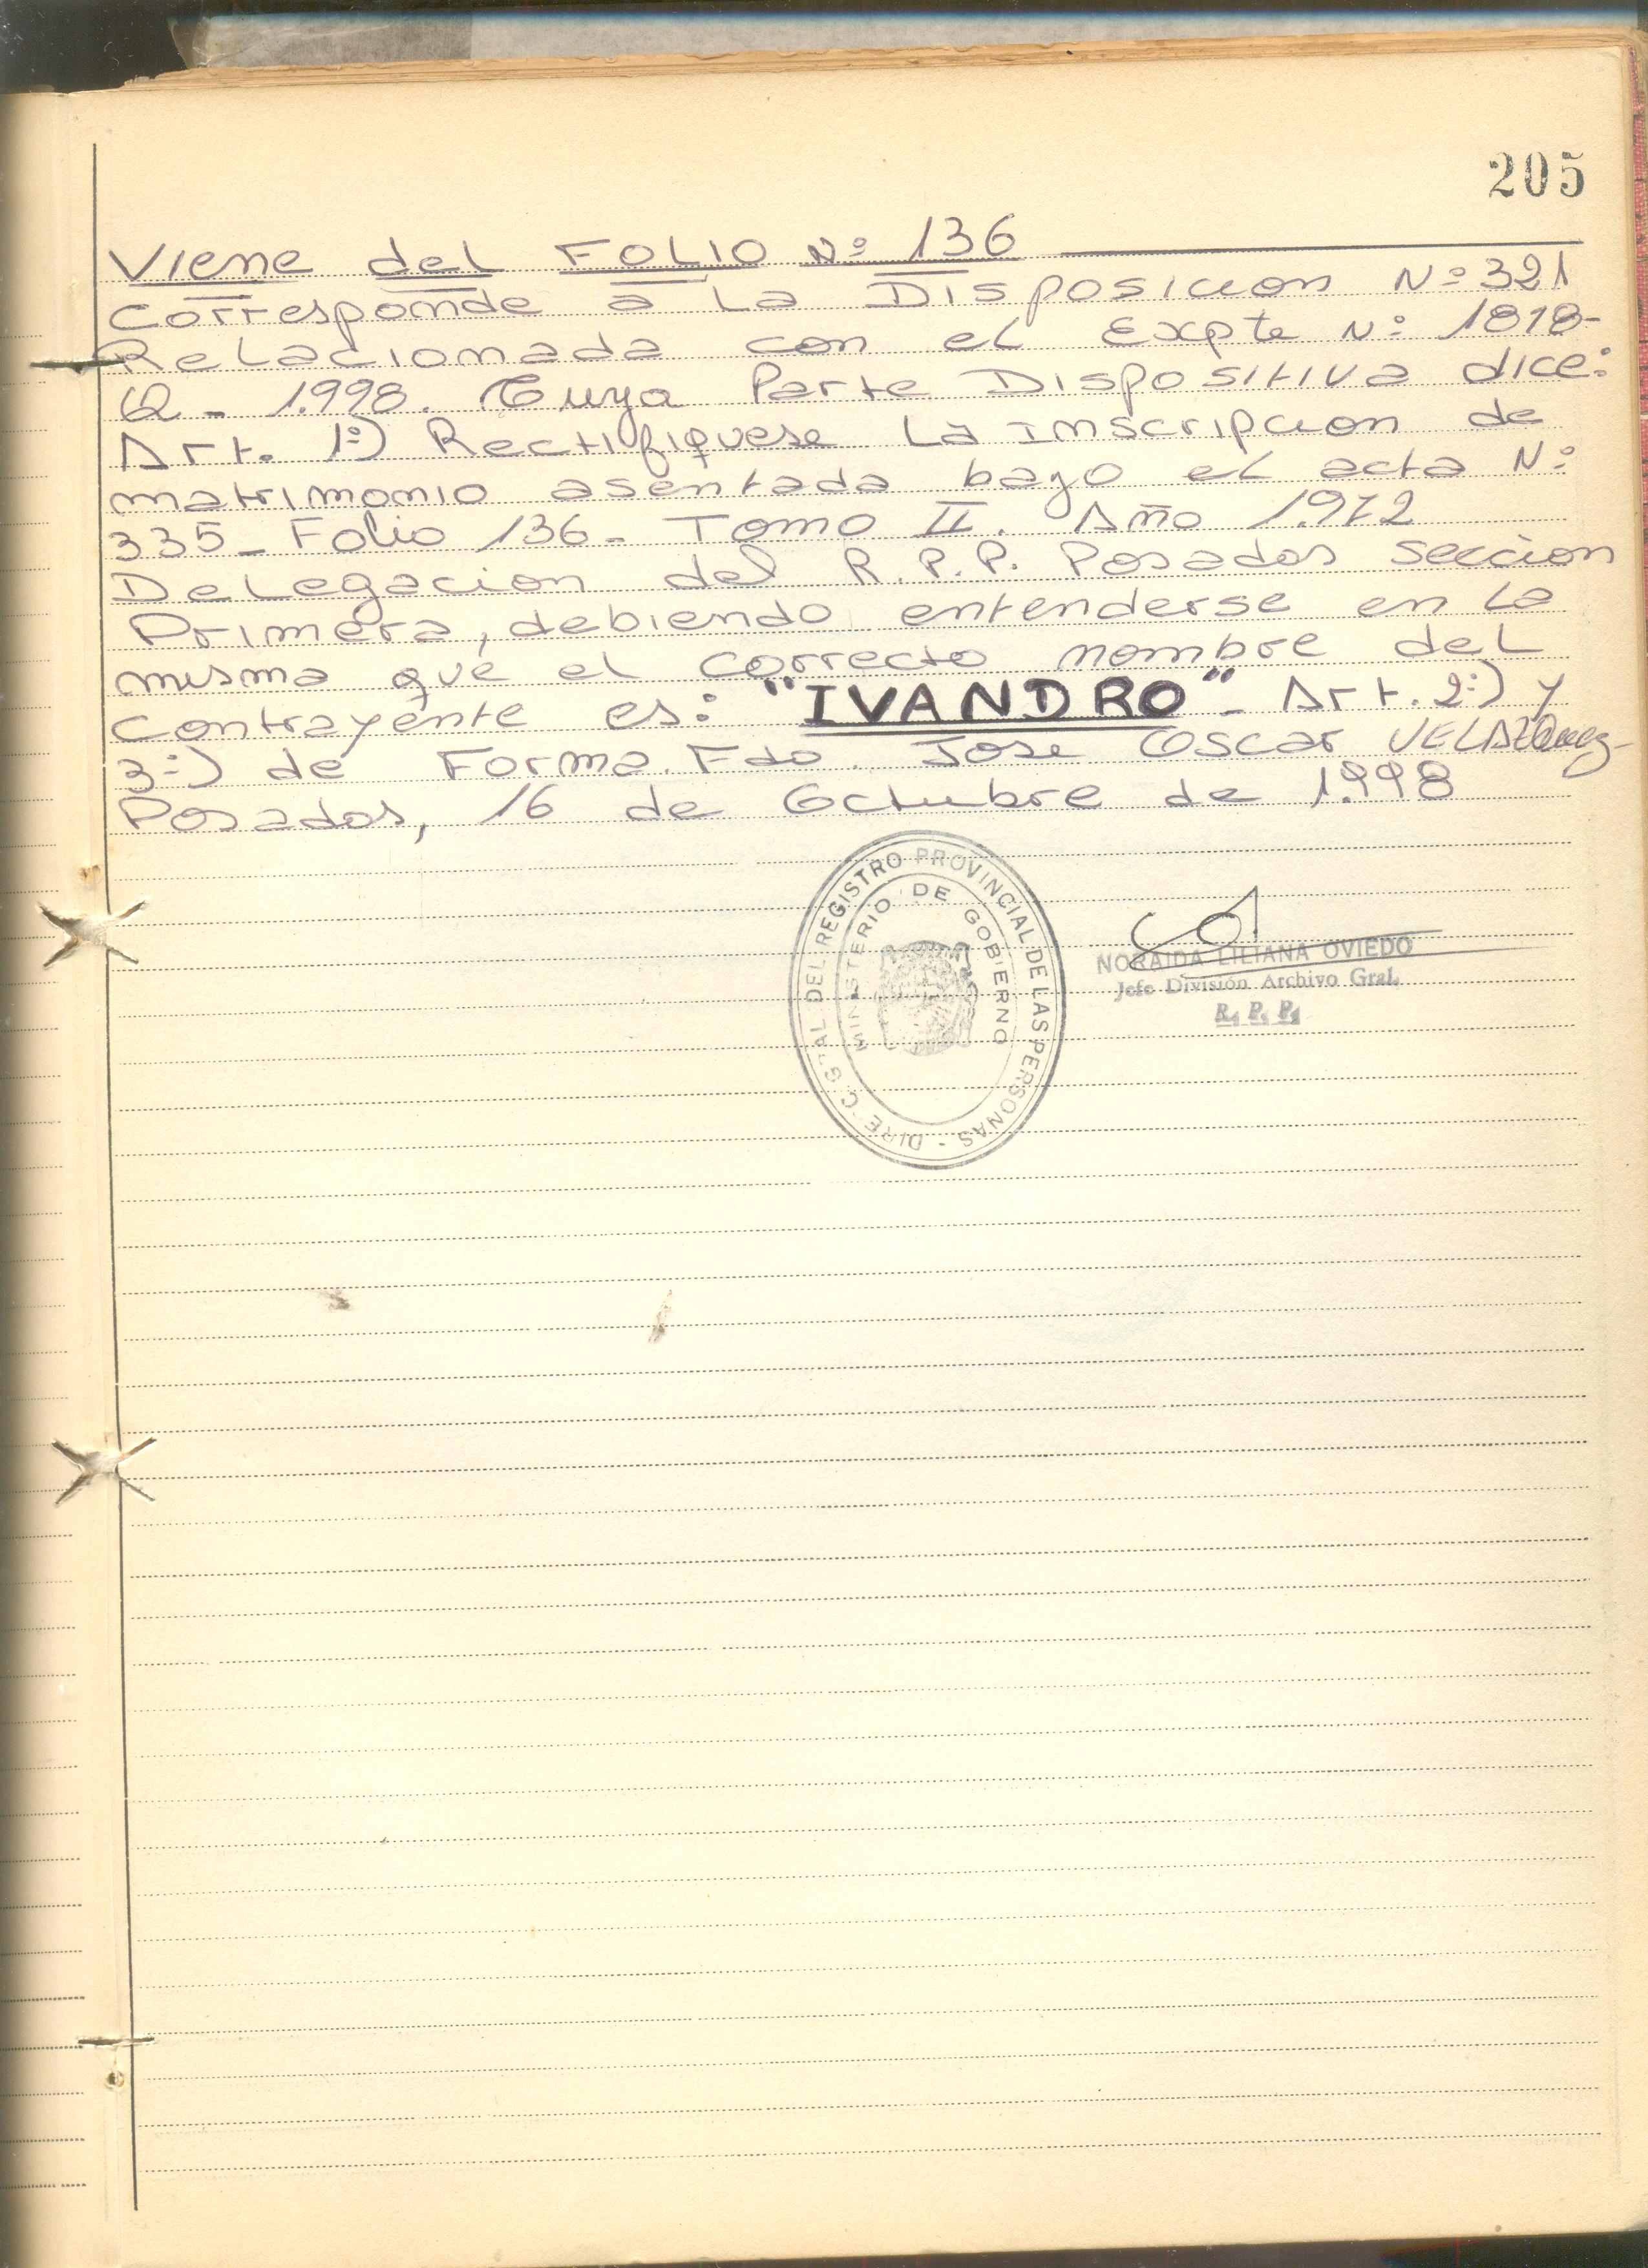 205
Viene del Folio Nº 136
Corresponde a la Disposicion Nº 321
Relacionada con el Expte Nº 1818-
Q - 1.998. Cuya Parte Dispositiva dice:
Art. 1º) Rectifiquese la inscripcion de
matrimonio asentada bajo el acta Nº
335 - Folio 136 - Tomo II. Año 1.972
Delegacion del R.P.P. Posadas seccion
Primera, debiendo entenderse en la
misma que el correcto nombre del
contrayente es: "IVANDRO" - Art. 2º) y
3º) de Forma. Fdo. Jose Oscar VELAZQuez-
Posadas, 16 de Octubre de 1.998
DIREC. G'AL DEL REGISTRO PROVINCIAL DE LAS PERSONAS -
MINISTERIO DE GOBIERNO
NORAIDA LILIANA OVIEDO
Jefe División Archivo Gral.
R. P. P.